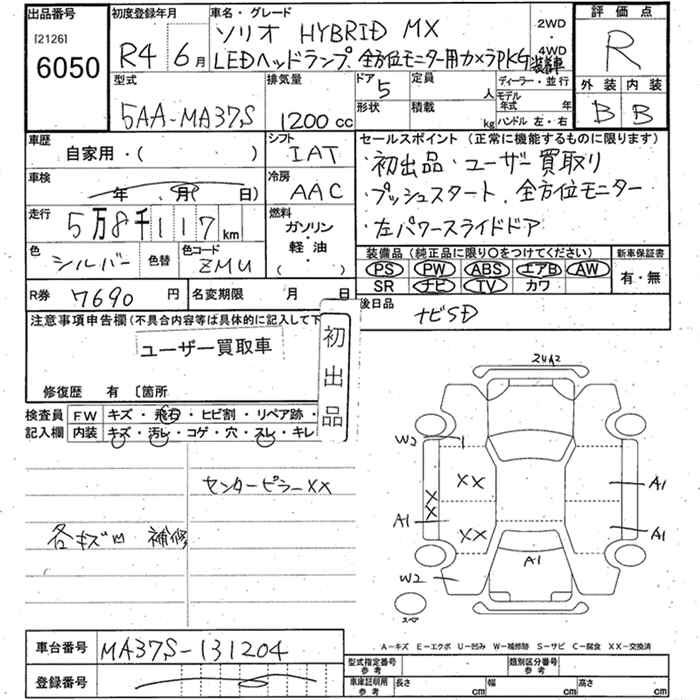 出品番号
[2126]
6050
初度登録年月
R4 6月
車名・グレード
ソリオ HYBRID MX
LEDヘッドランプ 全方位モニター用カメラPKG装着車
2WD
・
4WD
評価点
R
外装 内装
B B
型式
5AA-MA37S
排気量
1200cc
ドア 5
形状
定員 人
積載 kg
ディーラー・並行
モデル年式 年
ハンドル 左・右
車歴
自家用・( )
シフト
IAT
セールスポイント (正常に機能するものに限ります)
・初出品・ユーザー買取り
・プッシュスタート、全方位モニター
・左パワースライドドア
車検
年 月( 日)
冷房
AAC
走行
5万8千117km
燃料
ガソリン
軽油
( ・ )
色
シルバー
色替
色コード
ZMU
装備品 (純正品に限り○をつけてください)
PS PW ABS エアB AW
SR ナビ TV カワ
新車保証書
有・無
R券 7690円
名変期限 月 日
後日品
ナビSD
注意事項申告欄 (不具合内容等は具体的に記入して下
ユーザー買取車
初出品
修復歴 有 〔箇所
検査員記入欄
FW キズ・飛石・ヒビ割・リペア跡・
内装 キズ・汚レ・コゲ・穴・スレ・キレ
センターピラーXX
各キズ凹 補修
24A2
W2
1
XX
XX
XX
A1
W2
A1
A1
A1
スペア
A-キズ E-エクボ U-凹み W-補修跡 S-サビ C-腐食 XX-交換済
車台番号
MA37S-131204
登録番号
型式指定番号 参考
類別区分番号 参考
車庫証明用 参考
長さ cm
幅 cm
高さ cm